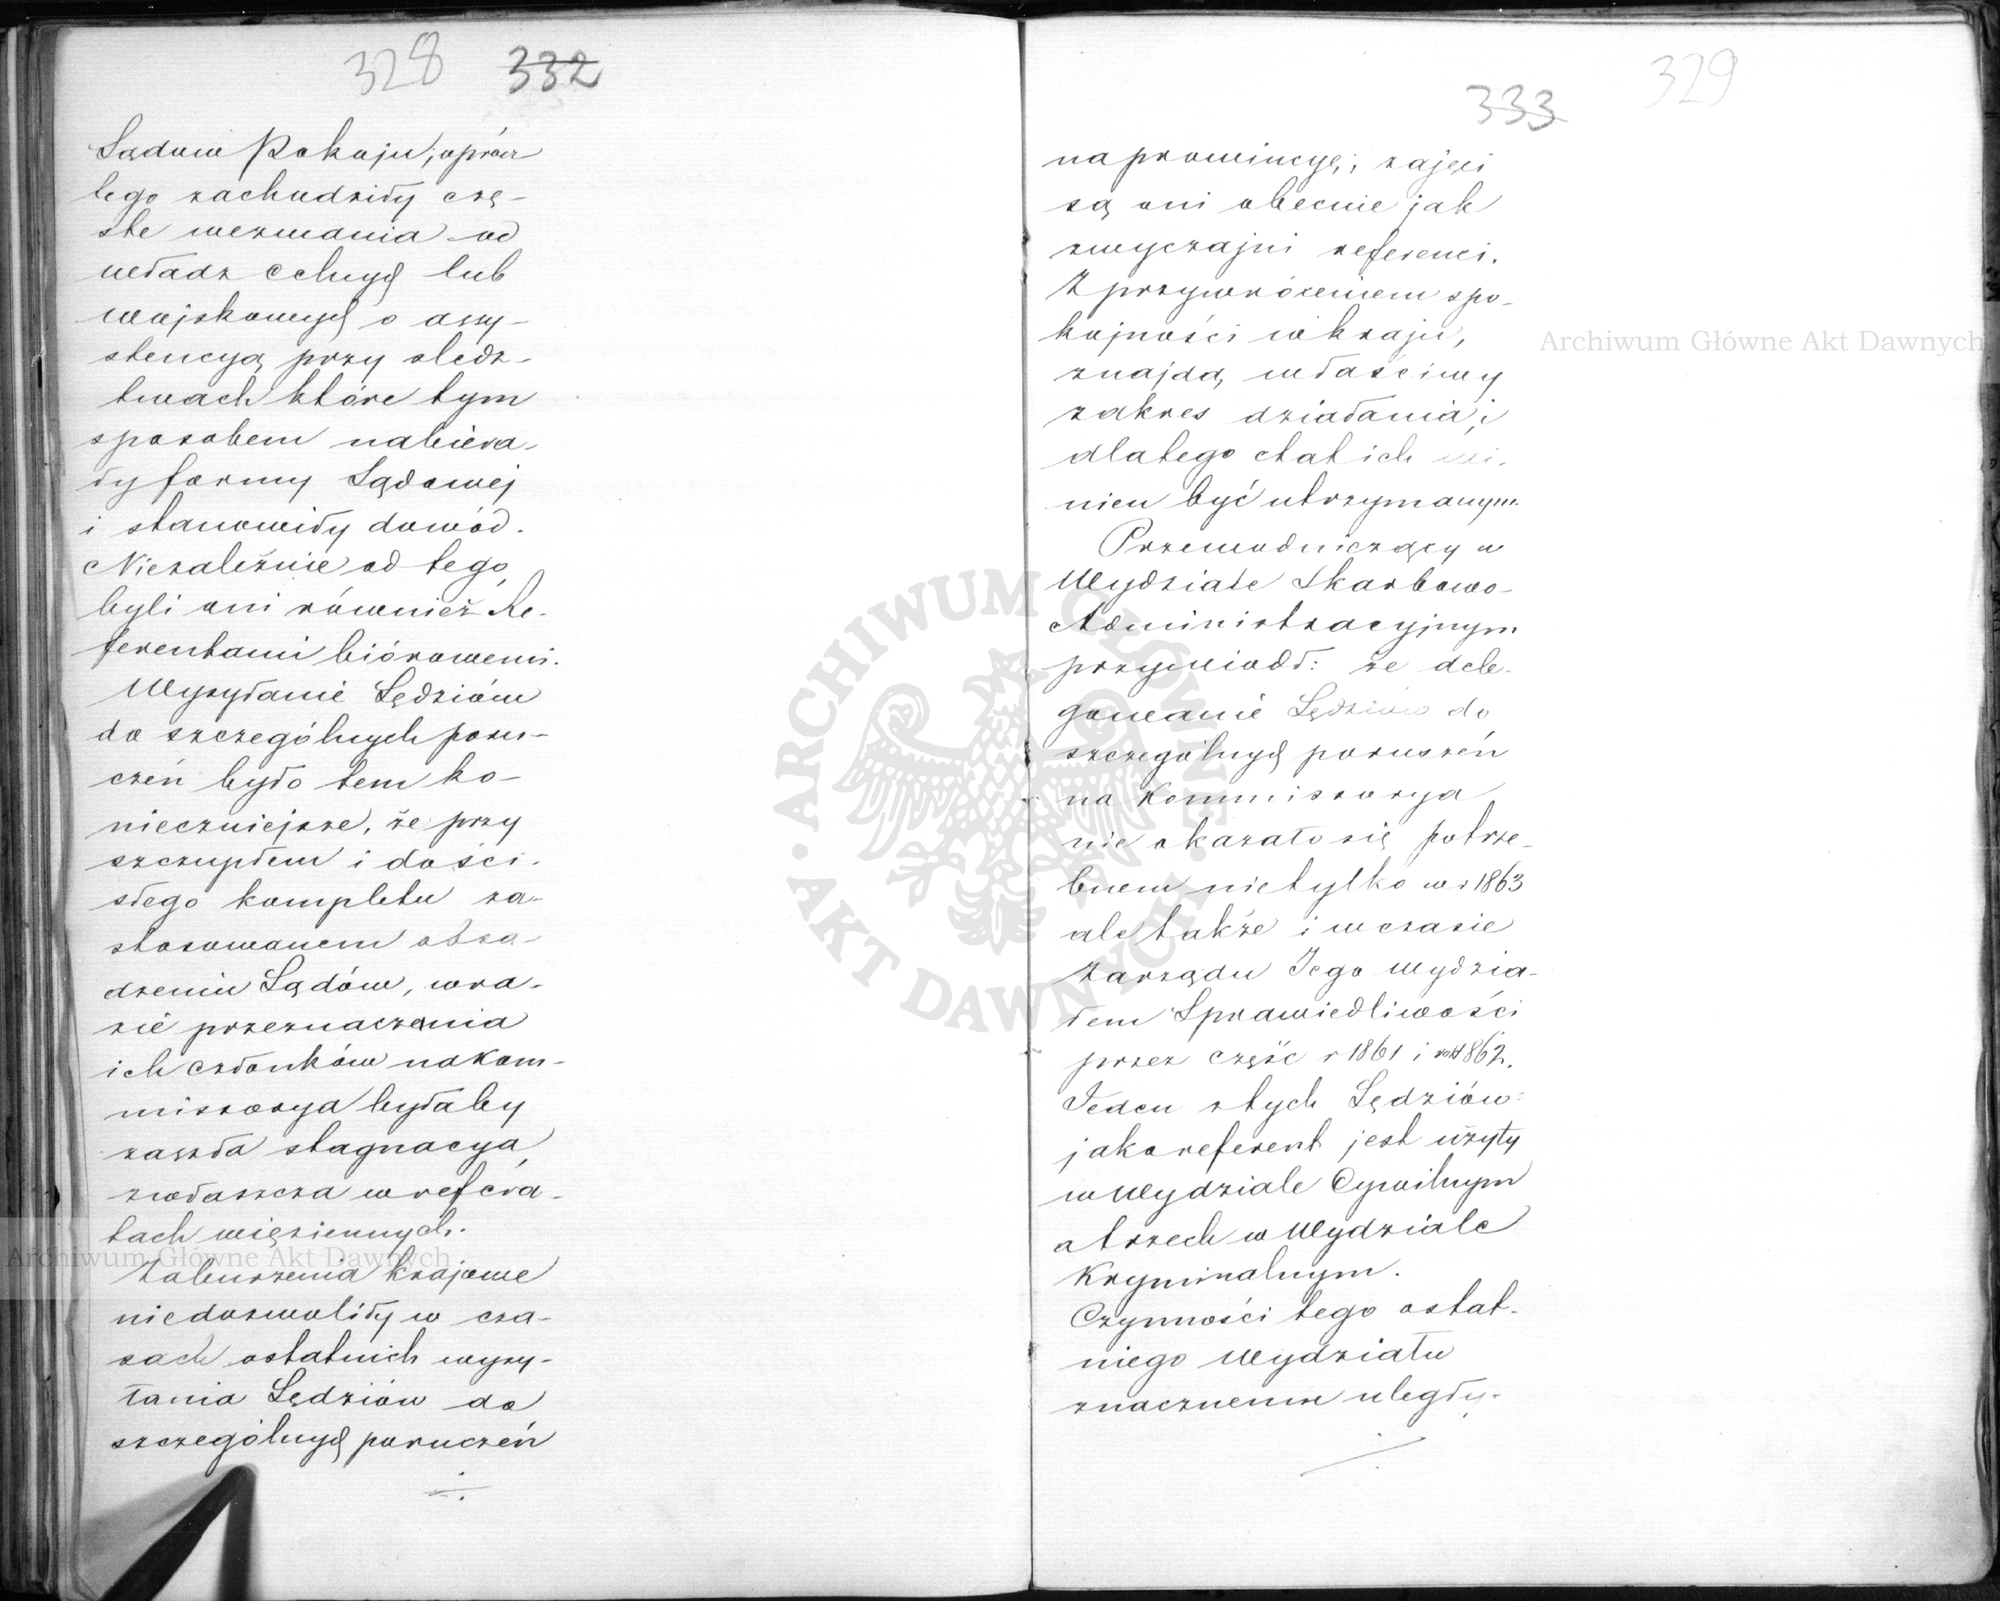 328 332
Sądów Pokoju; oprócz
tego zachodziły czę-
ste wezwania od
władz celnych lub
wojskowych o assy-
stencyą przy śledz-
twach które tym
sposobem nabiera-
ły formy Sądowej
i stanowiły dowód.
Niezależnie od tego,
byli oni również Re-
ferentami biórowemi.
Wysyłanie Sędziów
do szczególnych poru-
czeń było tem ko-
nieczniejsze, że przy
szczupłem i dości-
słego kompletu za-
stosowanem obsa-
dzeniu Sądów, w ra-
zie przeznaczenia
ich członków na kom-
missorya byłaby
zaszła stagnacya,
zwłaszcza w refera-
tach więziennych.
Zaburzenia krajowe
niedozwoliły w cza-
sach ostatnich wysy-
łania Sędziów do
szczególnych poruczeń
./.
333 329
na prowincyę; zajęci
są oni obecnie jak
zwyczajni referenci.
Z przywróceniem spo-
kojności w kraju,
znajdą właściwy
zakres działania, i
dlatego etat ich wi-
nien być utrzymanym.
Przewodniczący w
Wydziale Skarbowo-
Administracyjnym
przywiódł: że dele-
gowanie Sędziów do
szczególnych poruszeń
na Kommissorya
nie okazało się potrze-
bnem nietylko w r 1863
ale także i w czasie
Zarządu Jego Wydzia-
łem Sprawiedliwości
przez część r 1861 i rok 1862.
Jeden z tych Sędziów
jako referent jest użyty
w Wydziale Cywilnym
a trzech w Wydziale
Kryminalnym.
Czynności tego ostat-
niego Wydziału
znacznemu uległy
./.
Archiwum Główne Akt Dawnych
Archiwum Główne Akt Dawnych
ARCHIWUM GŁÓWNE AKT DAWNYCH